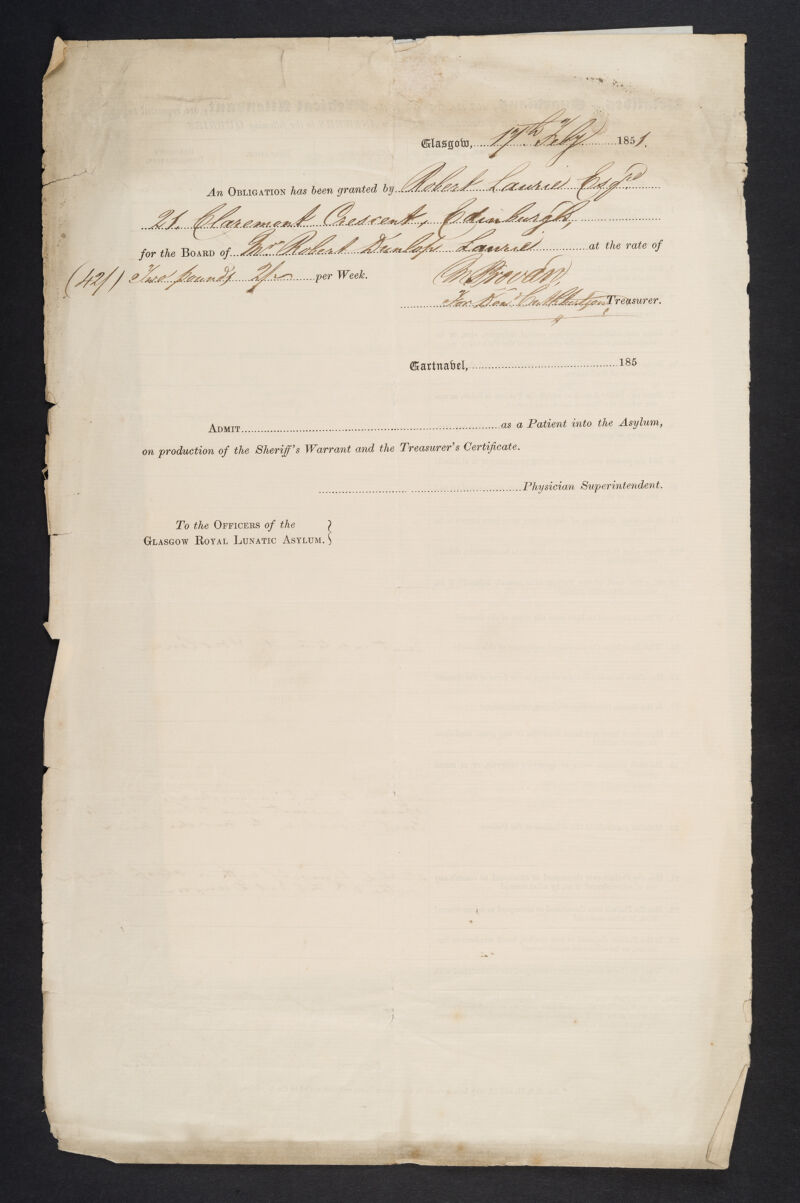 Glasgow, 17th Feby 1851.
An OBLIGATION has been granted by Robert Laurie Esqre
21. Claremont Crescent, Edinburgh,
for the BOARD of Mr Robert Dunlop Laurie at the rate of
(42/) Two pounds 2/- per Week.
Provan
For Cuthbertson Treasurer.
Gartnavel, 185
ADMIT as a Patient into the Asylum,
on production of the Sheriff's Warrant and the Treasurer's Certificate.
Physician Superintendent.
To the OFFICERS of the
GLASGOW ROYAL LUNATIC ASYLUM.